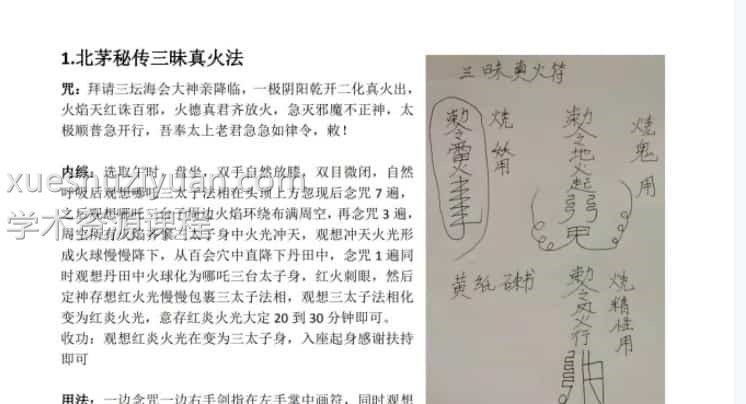 1.北茅秘传三昧真火法
咒：拜请三坛海会大神亲降临，一极阴阳乾开二化真火出，
火焰天红诛百邪，火德真君齐放火，急灭邪魔不正神，太
极顺普急开行，吾奉太上老君急急如律令，敕！
内练：选取午时，盘坐，双手自然放膝，双目微闭，自然
呼吸后观想哪吒三太子法相在头顶上方忽现后念咒 7 遍，
之后观想哪吒 周边火焰环绕布满周空，再念咒 3 遍，
周空所有火焰齐聚三太子身中火光冲天，观想冲天火光形
成火球慢慢降下，从百会穴中直降下丹田中，念咒 1 遍同
时观想丹田中火球化为哪吒三台太子身，红火刺眼，然后
定神存想红火光慢慢包裹三太子法相，观想三太子法相化
变为红炎火光，意存红炎火光大定 20 到 30 分钟即可。
收功：观想红炎火光在变为三太子身，入座起身感谢扶持
即可
用法：一边念咒一边右手剑指在左手掌中画符，同时观想
xueshuziyuan.com
学术资源课程
三昧真火符
敕令雷火
烧 用
敕令地火起弱
烧鬼用
黄纸
敕令风火行
烧精怪用